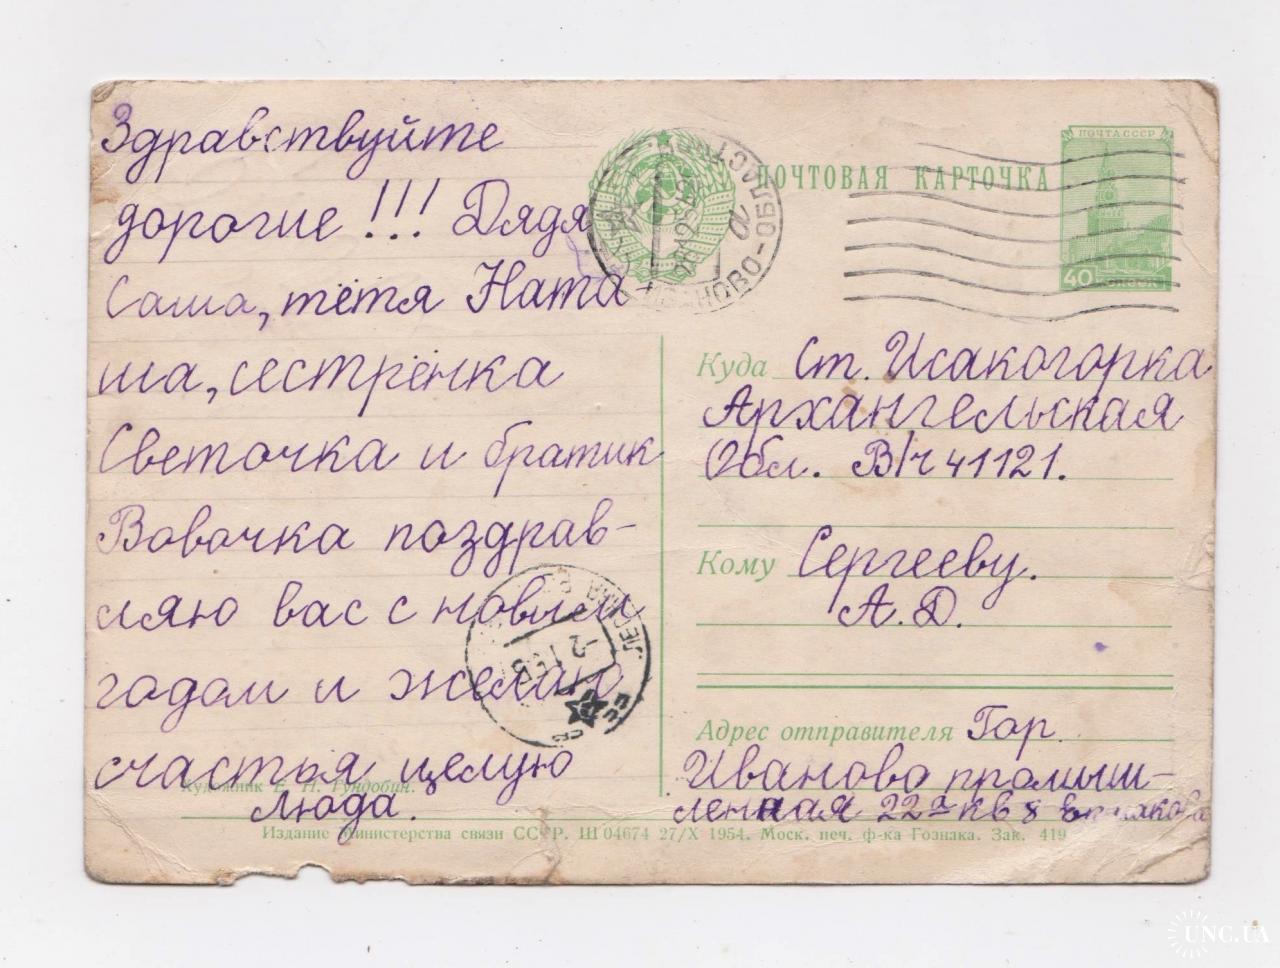 Здравствуйте
дорогие!!! Дядя
Саша, тётя Ната
ша, сестрёнка
Светочка и братик
Вовочка поздрав-
ляю вас с новым
годом и желаю
счастья целую
Люда.
ПОЧТОВАЯ КАРТОЧКА
ПОЧТА СССР
40 КОПЕЕК
Куда Ст. Исакогорка
Архангельская
Обл. В/ч 41121.
Кому Сергееву.
А. Д.
Адрес отправителя Гор.
Иваново промыш-
ленная 22а кв 8
Художник Е. Н. Гундобин.
Издание Министерства связи СССР. Ш 04674 27/X 1954. Моск. печ. ф-ка Гознака. Зак. 419
UNC.UA